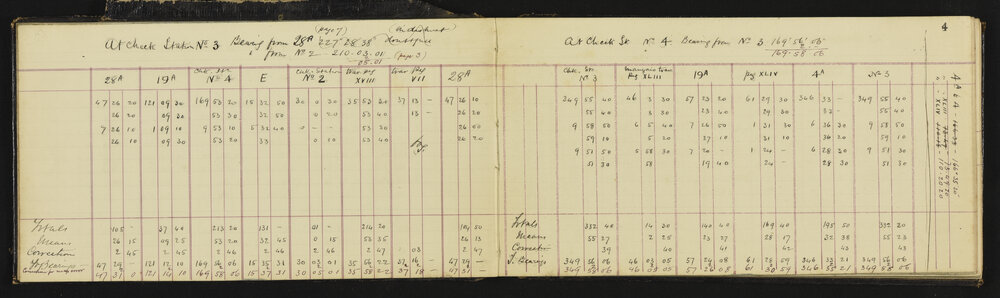 4
(page 7)
At Check Station No 3 Bearing from 28A 227° 28' 35"
" from No 2 - 210.03.01 (page 3)
05.01
28A 19A Chk. Stn No 4 E Chk. Station No 2 War. Peg XVIII War. Peg VII 28A
47 26 20 121 09 30 169 53 20 15 32 50 30 0 30 35 53 30 37 13 - 47 26 10
26 20 09 20 53 30 32 50 0 20 53 40 13 - 26 20
7 26 10 1 09 10 9 53 10 5 32 40 0 - - 53 30 26 00
26 10 09 30 53 20 33 0 10 53 40 26 20
Totals 105 - 37 40 213 20 131 - 01 - 214 20
Means 26 15 09 25 53 20 32 45 0 15 53 35 26 13
Correction 2 45 2 45 2 46 2 46 2 46 2 47 03 2 47
T. Bearing 47 29 - 121 12 10 169 56 06 15 35 31 30 03 01 35 56 22 37 16 47 29 -
At Check St. No 4 Bearing from No 3 169° 56' 06"
169.58 06
Chk. Stn No 3 Peg XLIII 19A Peg XLIV 4A No 3
349 55 40 46 3 30 57 23 20 61 29 30 346 33 - 349 55 40
55 40 3 30 23 40 29 30 33 - 55 40
9 58 50 6 5 40 7 26 50 1 31 30 6 36 30 9 58 50
59 10 5 20 27 10 31 10 36 20 59 10
9 51 50 5 58 30 7 20 - 1 24 - 6 28 30 9 51 30
51 30 58 19 40 24 - 28 30 51 30
Totals 332 40 14 30 140 40 169 40 195 50 332 20
Means 55 27 2 25 23 27 28 17 32 38 55 23
Correction 39 40 41 42 43 43
T. Bearings 349 56 06 46 03 05 57 24 08 61 28 59 346 33 21 349 56 06
349 58 06 46 05 05 57 26 08 61 30 59 346 35 21 349 58 06